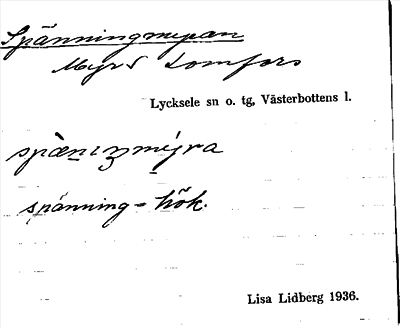 Spänningmyran
Myr S Lomfors
Lycksele sn o. tg, Västerbottens l.
spänning-hök.
Lisa Lidberg 1936.